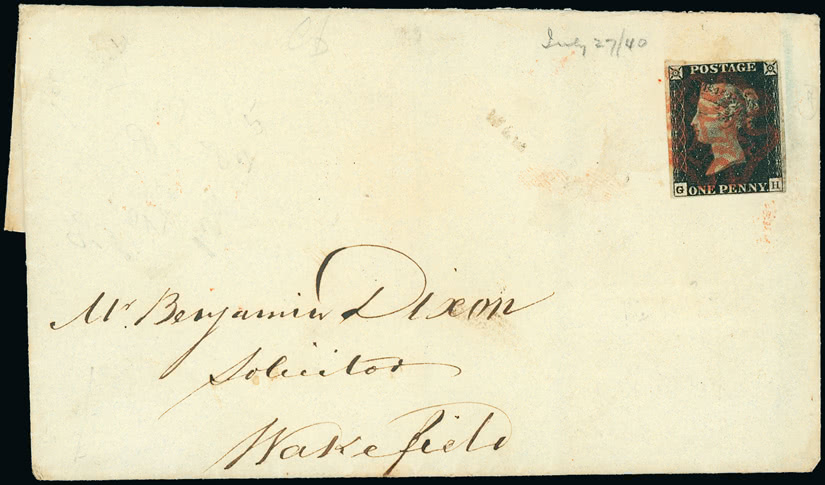 July 27/40
POSTAGE
G ONE PENNY H
Mr. Benjamin Dixon
Solicitor
Wakefield